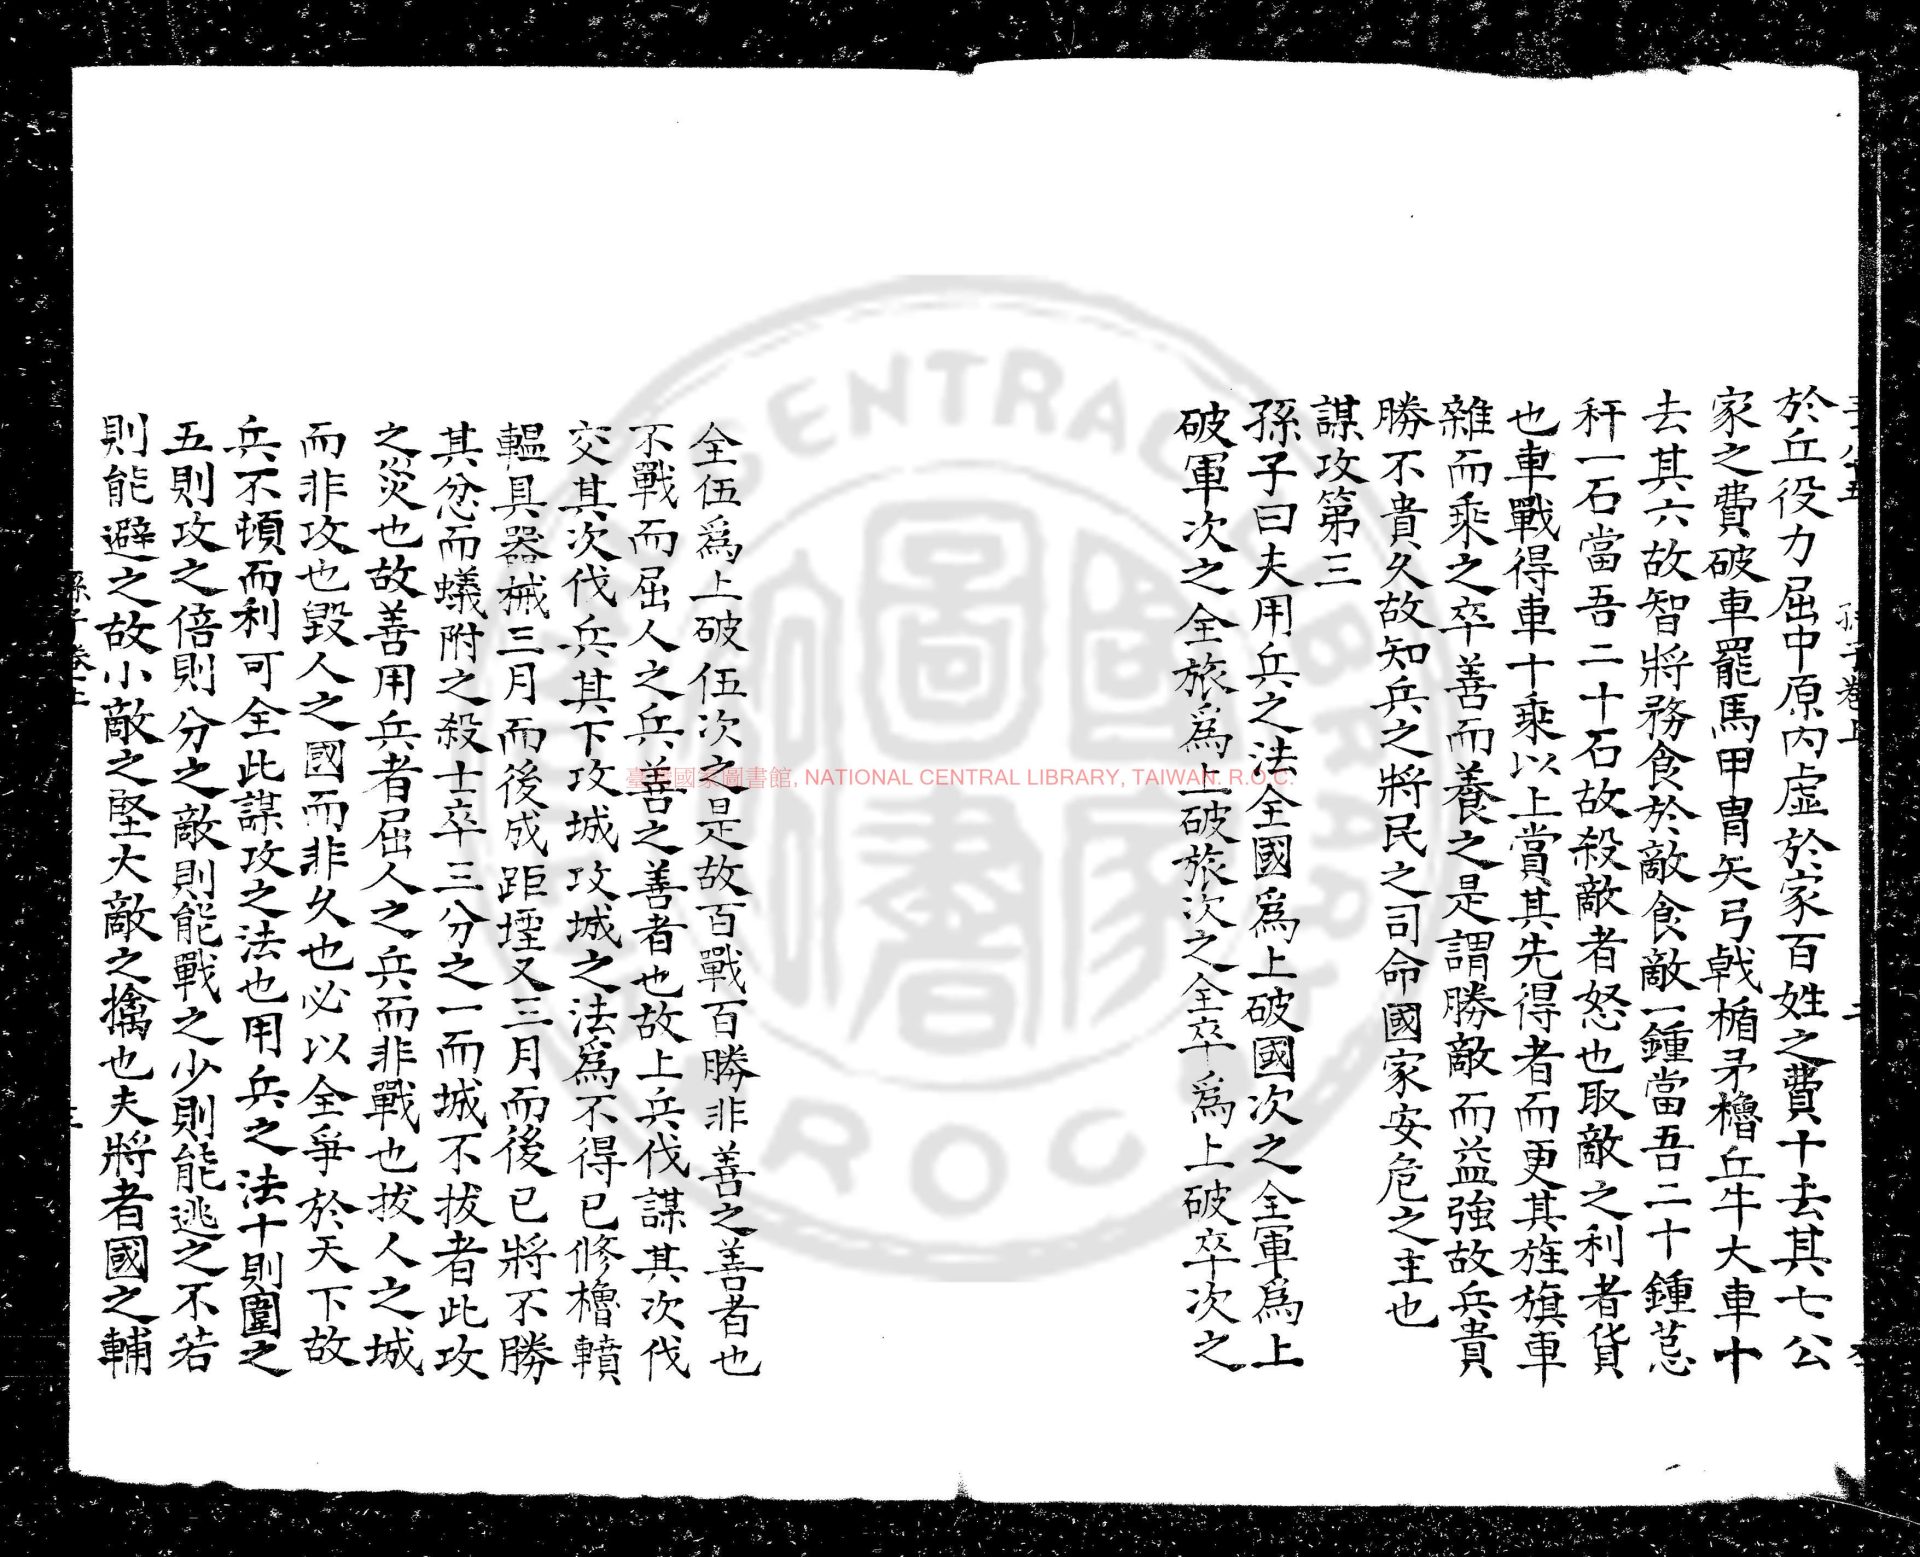 於丘役力屈中原內虛於家百姓之費十去其七公
家之費破車罷馬甲冑矢弓戟楯矛櫓丘牛大車十
去其六故智將務食於敵食敵一鍾當吾二十鍾𦮼
秆一石當吾二十石故殺敵者怒也取敵之利者貨
也車戰得車十乘以上賞其先得者而更其旌旗車
雜而乘之卒善而養之是謂勝敵而益強故兵貴
勝不貴久故知兵之將民之司命國家安危之主也
謀攻第三
孫子曰夫用兵之法全國爲上破國次之全軍爲上
破軍次之全旅爲上破旅次之全卒爲上破卒次之
全伍爲上破伍次之是故百戰百勝非善之善者也
不戰而屈人之兵善之善者也故上兵伐謀其次伐
交其次伐兵其下攻城攻城之法爲不得已修櫓轒
轀具器械三月而後成距堙又三月而後已將不勝
其忿而蟻附之殺士卒三分之一而城不拔者此攻
之災也故善用兵者屈人之兵而非戰也拔人之城
而非攻也毀人之國而非久也必以全爭於天下故
兵不頓而利可全此謀攻之法也用兵之法十則圍之
五則攻之倍則分之敵則能戰之少則能逃之不若
則能避之故小敵之堅大敵之擒也夫將者國之輔
臺灣國家圖書館, NATIONAL CENTRAL LIBRARY, TAIWAN. R.O.C.